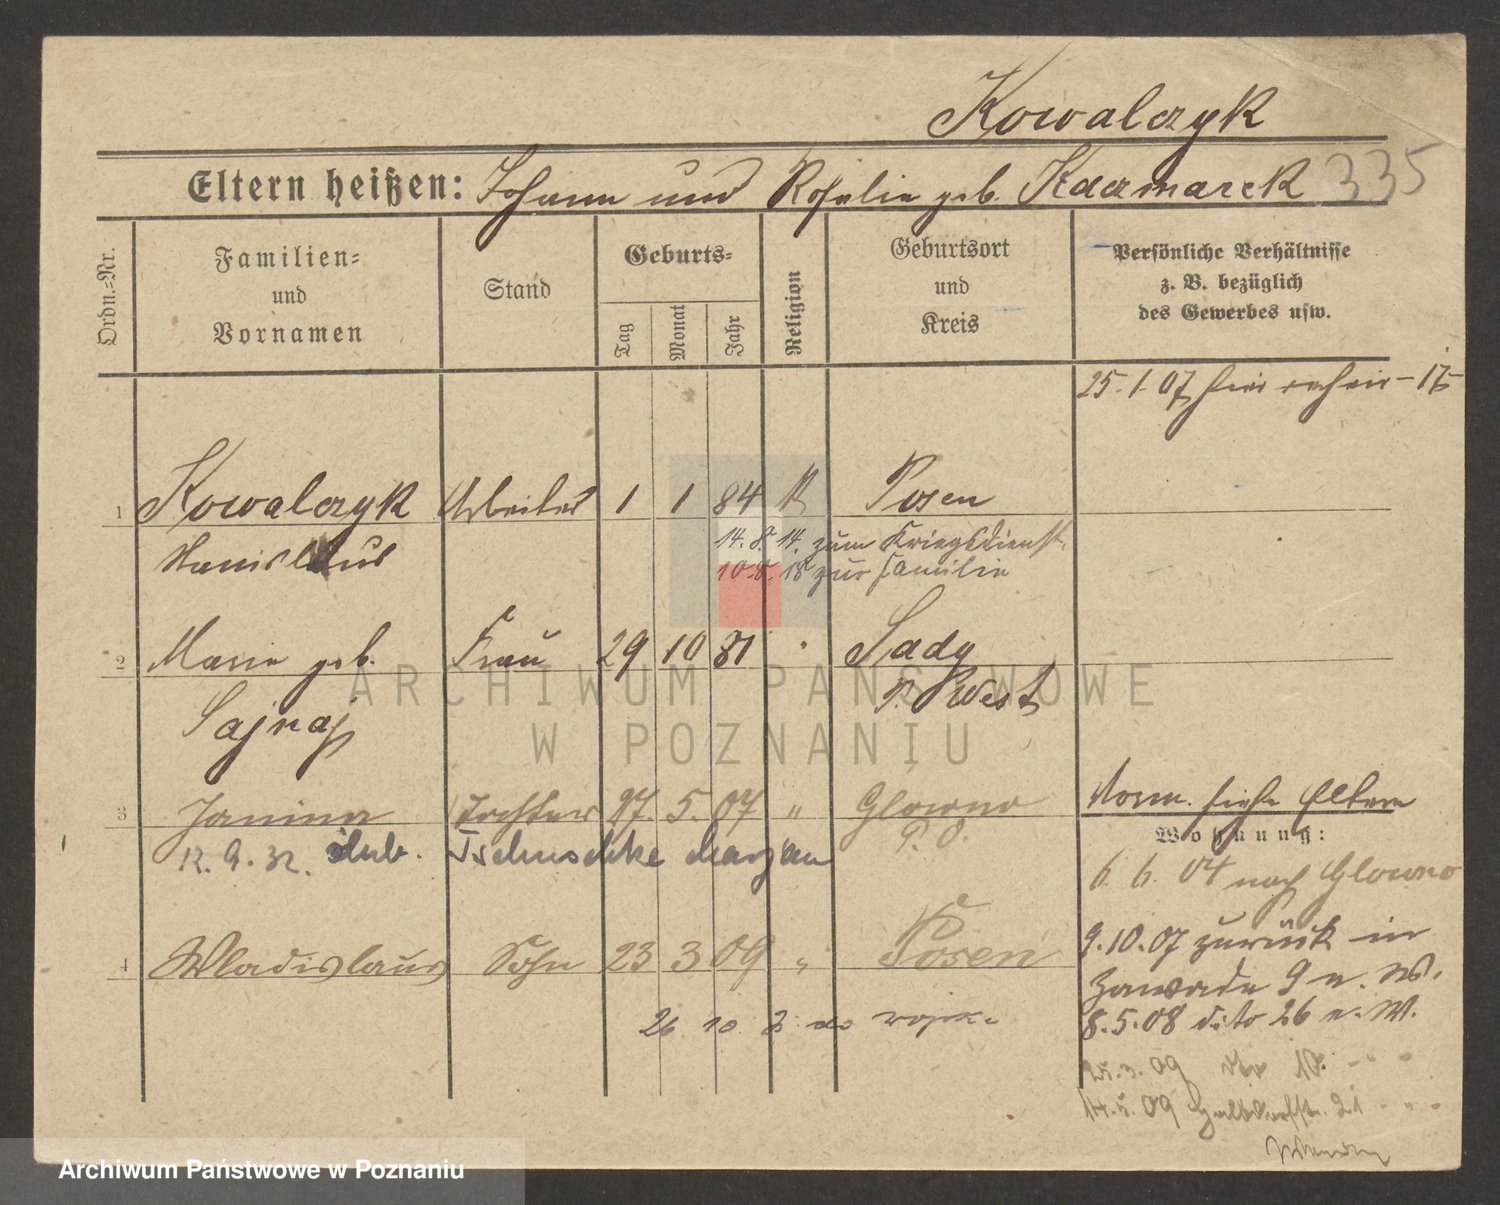 Kowalczyk
Eltern heißen: Johann und Rosalie geb. Kaczmarek 335
Ordn.-Nr.
Familien-
und
Vornamen
Stand
Geburts-
Tag
Monat
Jahr
Religion
Geburtsort
und
Kreis
Persönliche Verhältnisse
z. B. bezüglich
des Gewerbes usw.
25. 1. 07 hier
1 Kowalczyk Arbeiter 1 1 84 k Posen
Stanislaus
14. 8. 14. zum Kriegsdienst.
10. 8. 18 zur Familie
2 Marie geb. Frau 29 10 81 " Sady
Sajnaj
P. West
3 Janina Tochter 27. 5. 07 " Glowno
P. O.
Vorm. siehe Eltern
Wohnung:
12. 9. 32. ślub. Tschuschke Marjan
6. 6. 04 nach Glowno
4 Wladislaus Sohn 23 3 09 " Posen
9. 10. 07 zurück in
Zawade 9 n. W.
8. 5. 08 dito 26 n. W.
26 10 2 do wojsk.
25. 3. 09 dto 10. - " -
14. 5. 09 Halbdorfstr. 21 - " -
ARCHIWUM PAŃSTWOWE
W POZNANIU
Archiwum Państwowe w Poznaniu